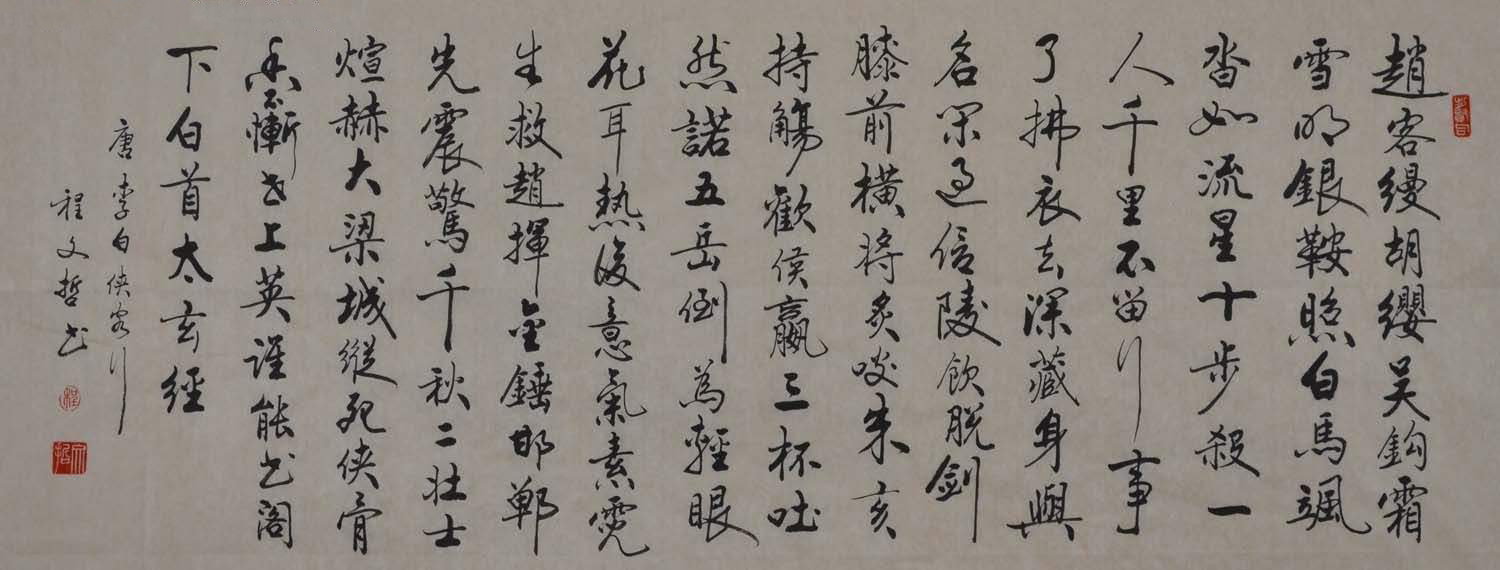 趙客縵胡纓吴鈎霜
雪明銀鞍照白馬颯
沓如流星十步殺一
人千里不留行事
了拂衣去深藏身與
名閑過信陵飲脱劍
膝前橫將炙啖朱亥
持觴勸侯嬴三杯吐
然諾五岳倒為輕眼
花耳熱後意氣素霓
生救趙揮金錘邯鄲
先震驚千秋二壯士
煊赫大梁城縱死俠骨
香不慚世上英誰能書閣
下白首太玄經
唐李白俠客行
程文哲書
程
文哲